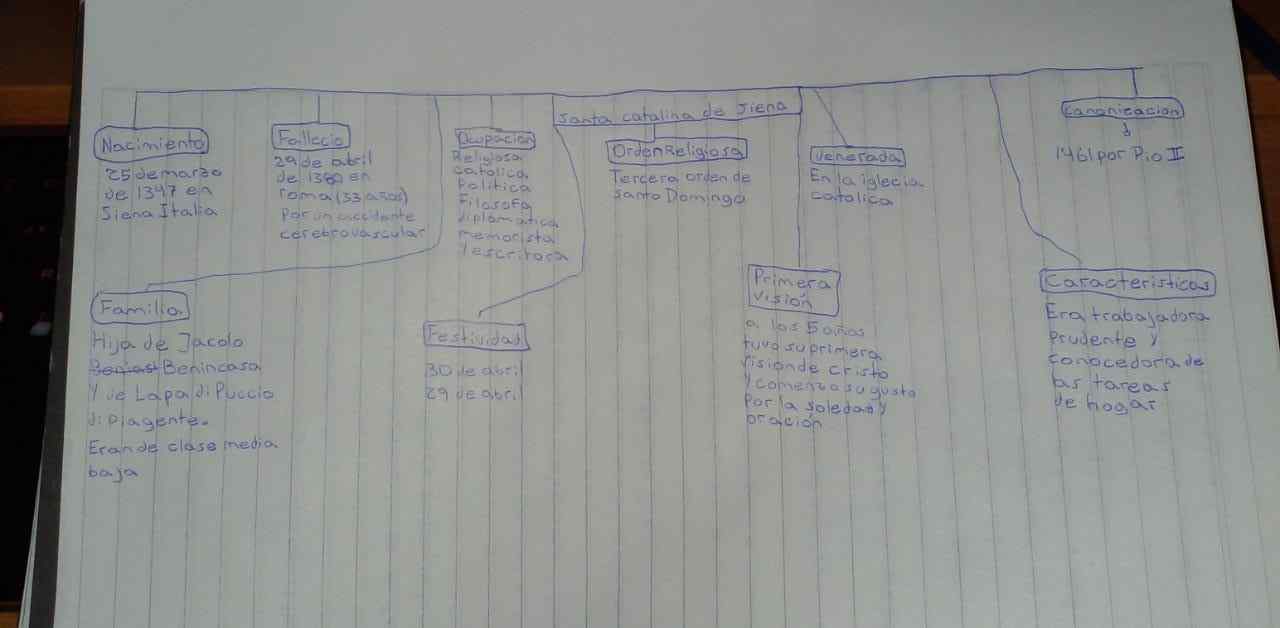 Santa catalina de Siena
Nacimiento
25 de marzo
de 1347 en
Siena Italia
Fallecio
29 de abril
de 1380 en
roma (33 años)
Por un accidente
cerebrovascular
Ocupacion
Religiosa
catolica
Politica
Filosofa
diplomatica
memorista
Y escritora
Orden Religiosa
Tercera orden de
Santo Domingo
Venerada
En la iglecia
catolica
Canonicacion
1461 por Pio II
Familia
Hija de Jacolo
Benincasa
Y de Lapa di Puccio
di Piagente.
Eran de clase media
baja
Festividad
30 de abril
29 de abril
Primera
visión
a los 5 años
tuvo su primera
vision de cristo
Y comenzo su gusto
Por la soledad y
oración
Caracteristicas
Era trabajadora
Prudente y
conocedora de
las tareas
de hogar